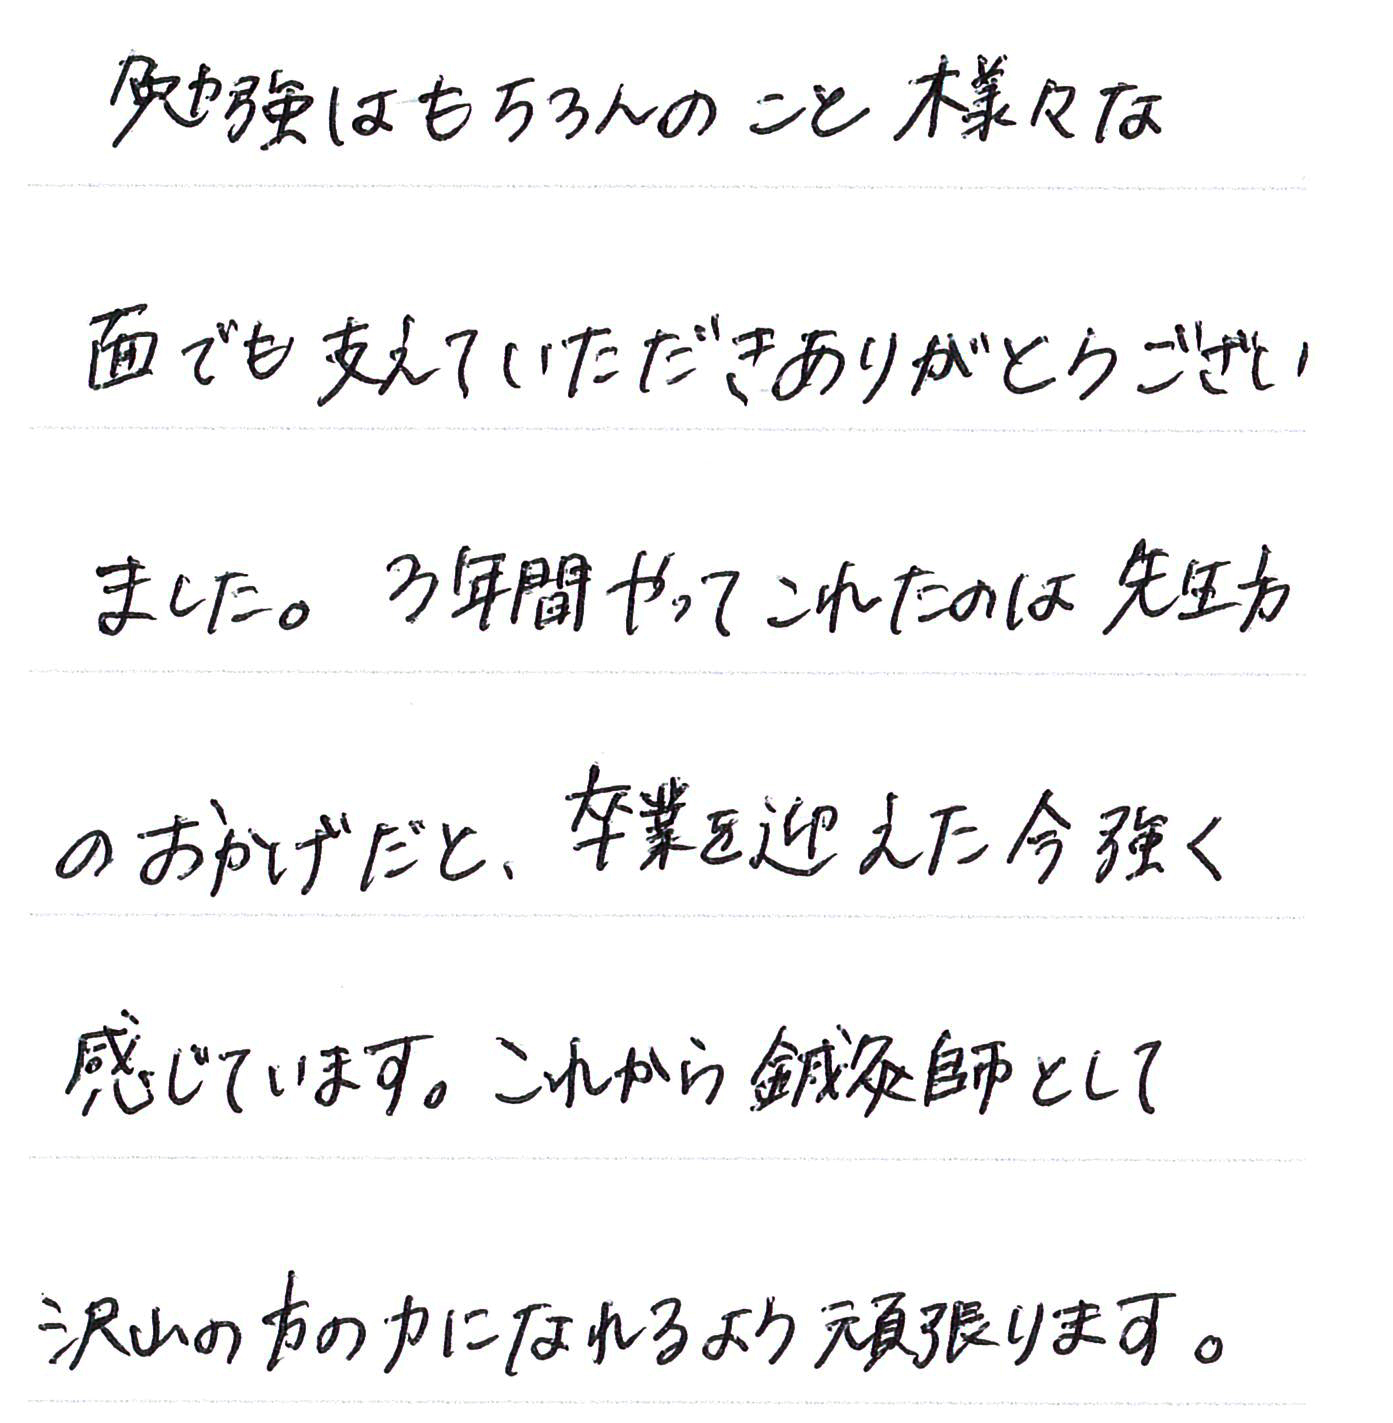 勉強はもちろんのこと様々な
面でも支えていただきありがとうござい
ました。3年間やってこれたのは先生方
のおかげだと、卒業を迎えた今強く
感じています。これから鍼灸師として
沢山の方の力になれるよう頑張ります。